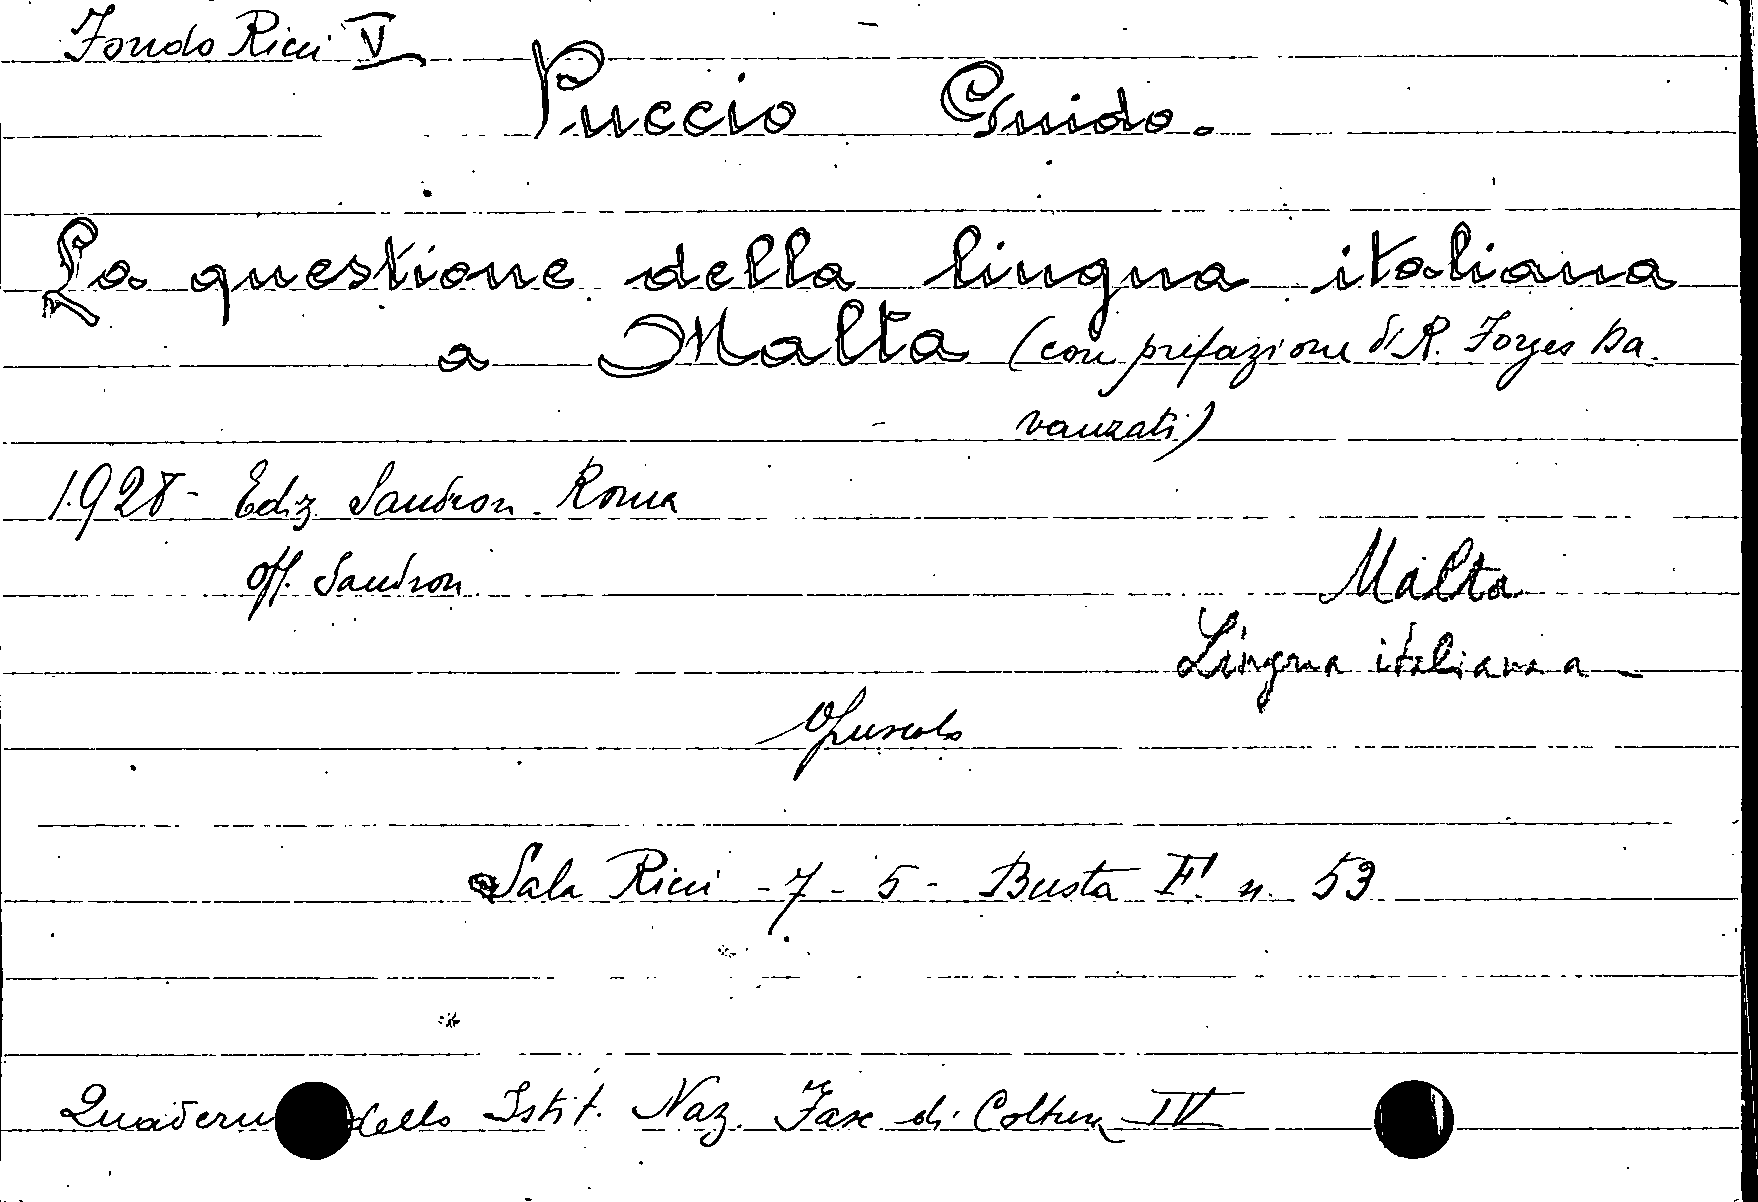 Fondo Ricci V
Puccio Guido.
La questione della lingua italiana
a Malta (con prefazione di R. Forges Da-
vanzati)
1928 - Ediz. Sandron. Roma
Off. Sandron
Malta
Lingua italiana a -
Opuscolo
Sala Ricci - 7 - 5 - Busta F1 n. 53
dello Istit. Naz. Fasc di Coltura IV